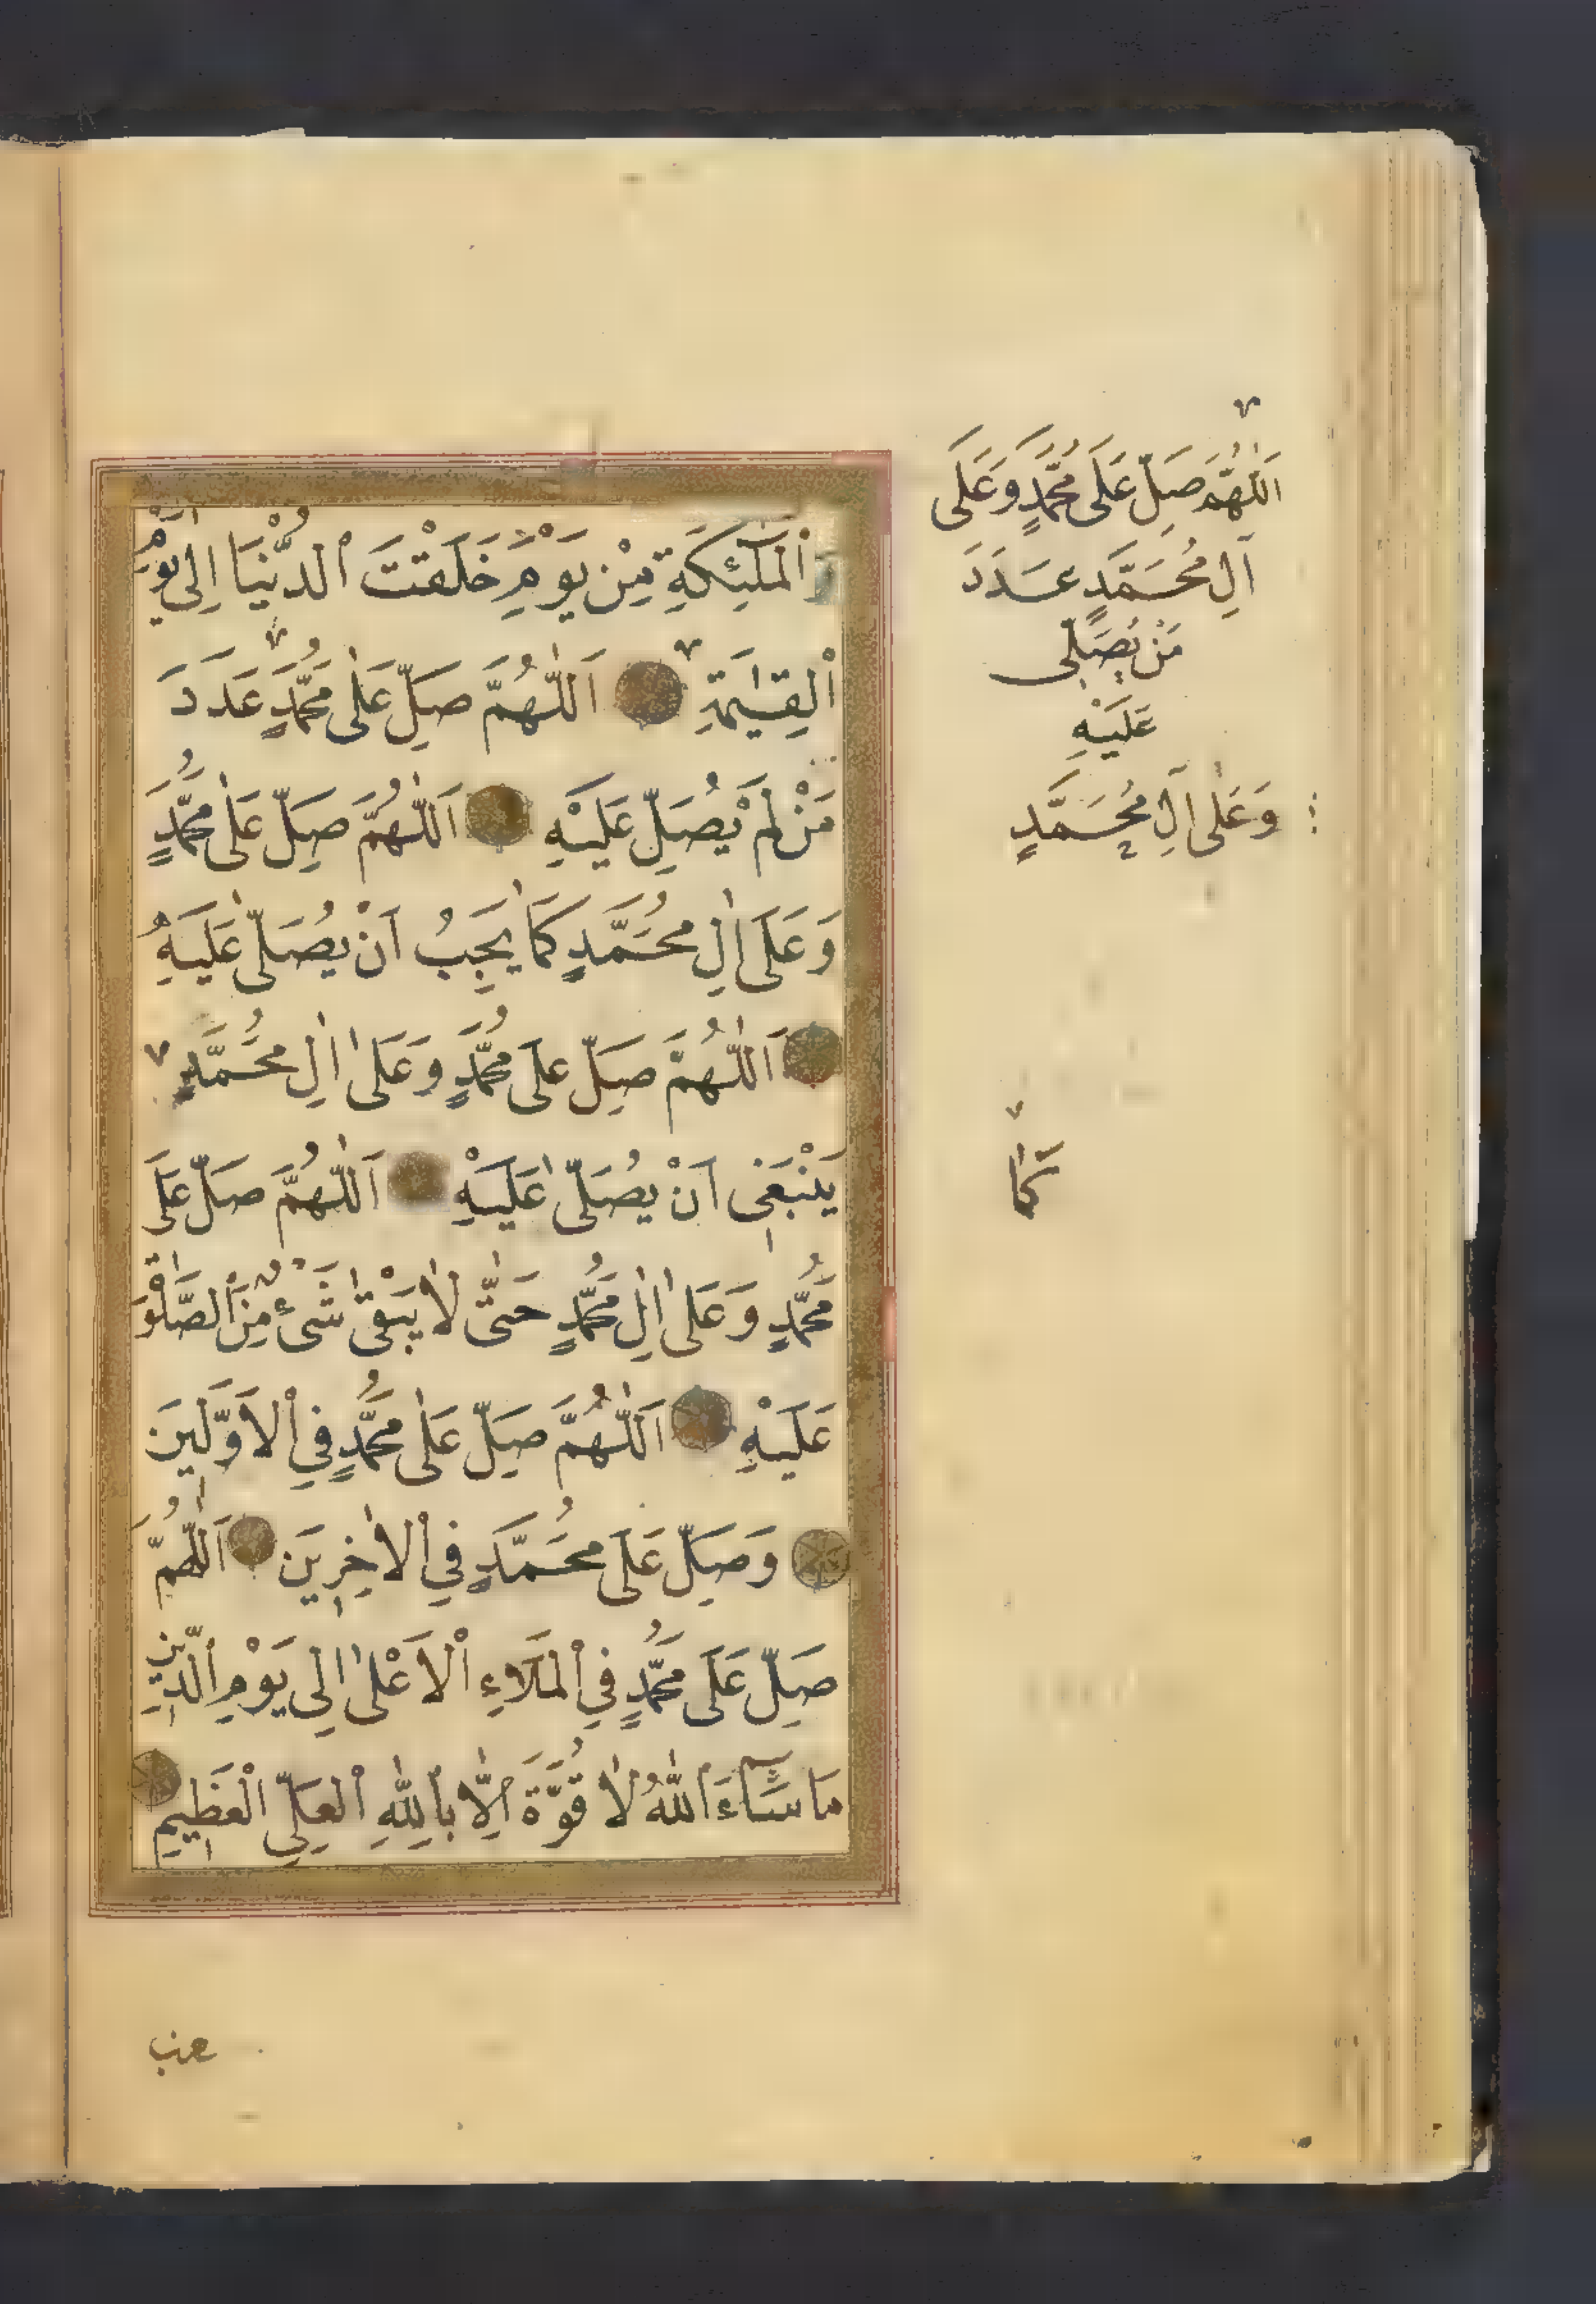 اَلْمَلٰٓئِكَةِ مِنْ يَوْمِ خَلَقْتَ الدُّنْيَا اِلٰى يَوْمِ
الْقِيٰمَةِ اَللّٰهُمَّ صَلِّ عَلٰى مُحَمَّدٍ عَدَدَ
مَنْ لَمْ يُصَلِّ عَلَيْهِ اَللّٰهُمَّ صَلِّ عَلٰى مُحَمَّدٍ
وَعَلَى اٰلِ مُحَمَّدٍ كَمَا يَجِبُ اَنْ يُصَلّٰى عَلَيْهِ
اَللّٰهُمَّ صَلِّ عَلَى مُحَمَّدٍ وَعَلٰى اٰلِ مُحَمَّدٍ
يَنْبَغِى اَنْ يُصَلّٰى عَلَيْهِ اَللّٰهُمَّ صَلِّ عَلَى
مُحَمَّدٍ وَعَلٰى اٰلِ مُحَمَّدٍ حَتّٰى لَا يَبْقٰى شَىْءٌ مِنَ الصَّلٰوةِ
عَلَيْهِ اَللّٰهُمَّ صَلِّ عَلٰى مُحَمَّدٍ فِى الْاَوَّلِينَ
وَصَلِّ عَلَى مُحَمَّدٍ فِى الْاٰخِرِينَ اَللّٰهُمَّ
صَلِّ عَلَى مُحَمَّدٍ فِى الْمَلَاءِ الْاَعْلٰى اِلٰى يَوْمِ الدِّينِ
مَا شَآءَ اللّٰهُ لَا قُوَّةَ اِلَّا بِاللّٰهِ الْعَلِىِّ الْعَظِيمِ
اَللّٰهُمَّ صَلِّ عَلَى مُحَمَّدٍ وَعَلَى
اٰلِ مُحَمَّدٍ عَدَدَ
مَنْ يُصَلِّى
عَلَيْهِ
وَعَلٰى اٰلِ مُحَمَّدٍ
كَمَا